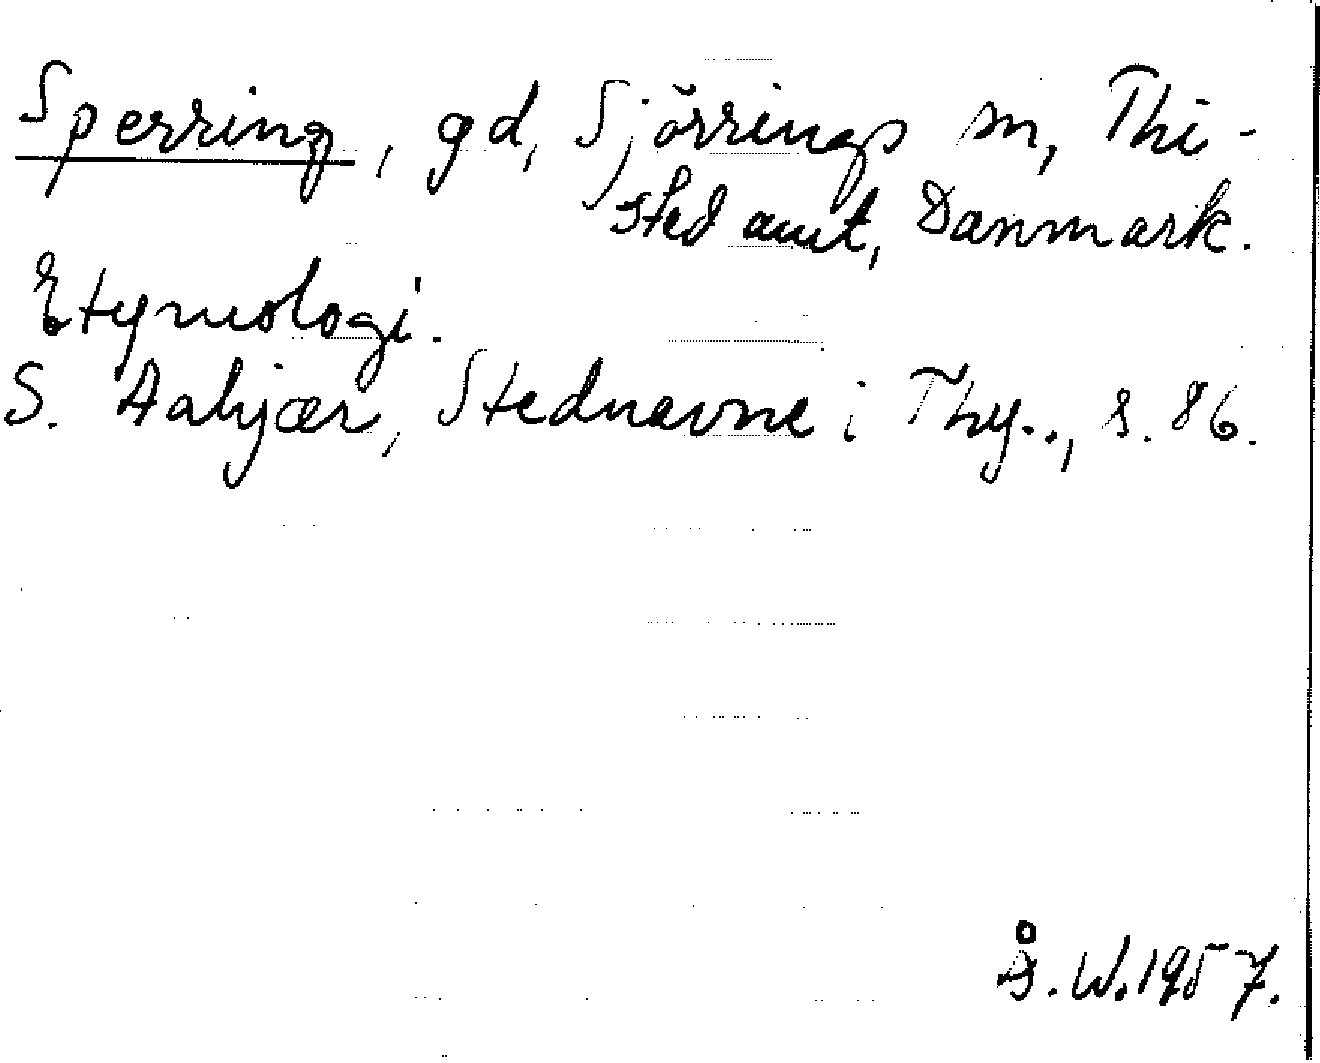 Sperring, gd, Sjörrings sn, Thi-
sted amt, Danmark.
Etymologi.
S. Aakjær, Stednavne i Thy.., s. 86.
Å. W. 1957.